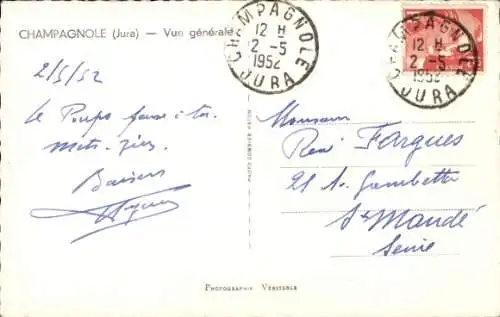 CHAMPAGNOLE (Jura) — Vue générale
CHAMPAGNOLE
12 H
2 - 5
1952
JURA
CHAMPAGNOLE
12 H
2 - 5
1952
JURA
2/5/52
Le
Baisers
Monsieur
René Fargues
21 Av. Gambetta
St Mandé
Seine
PHOTOGRAPHIE VÉRITABLE